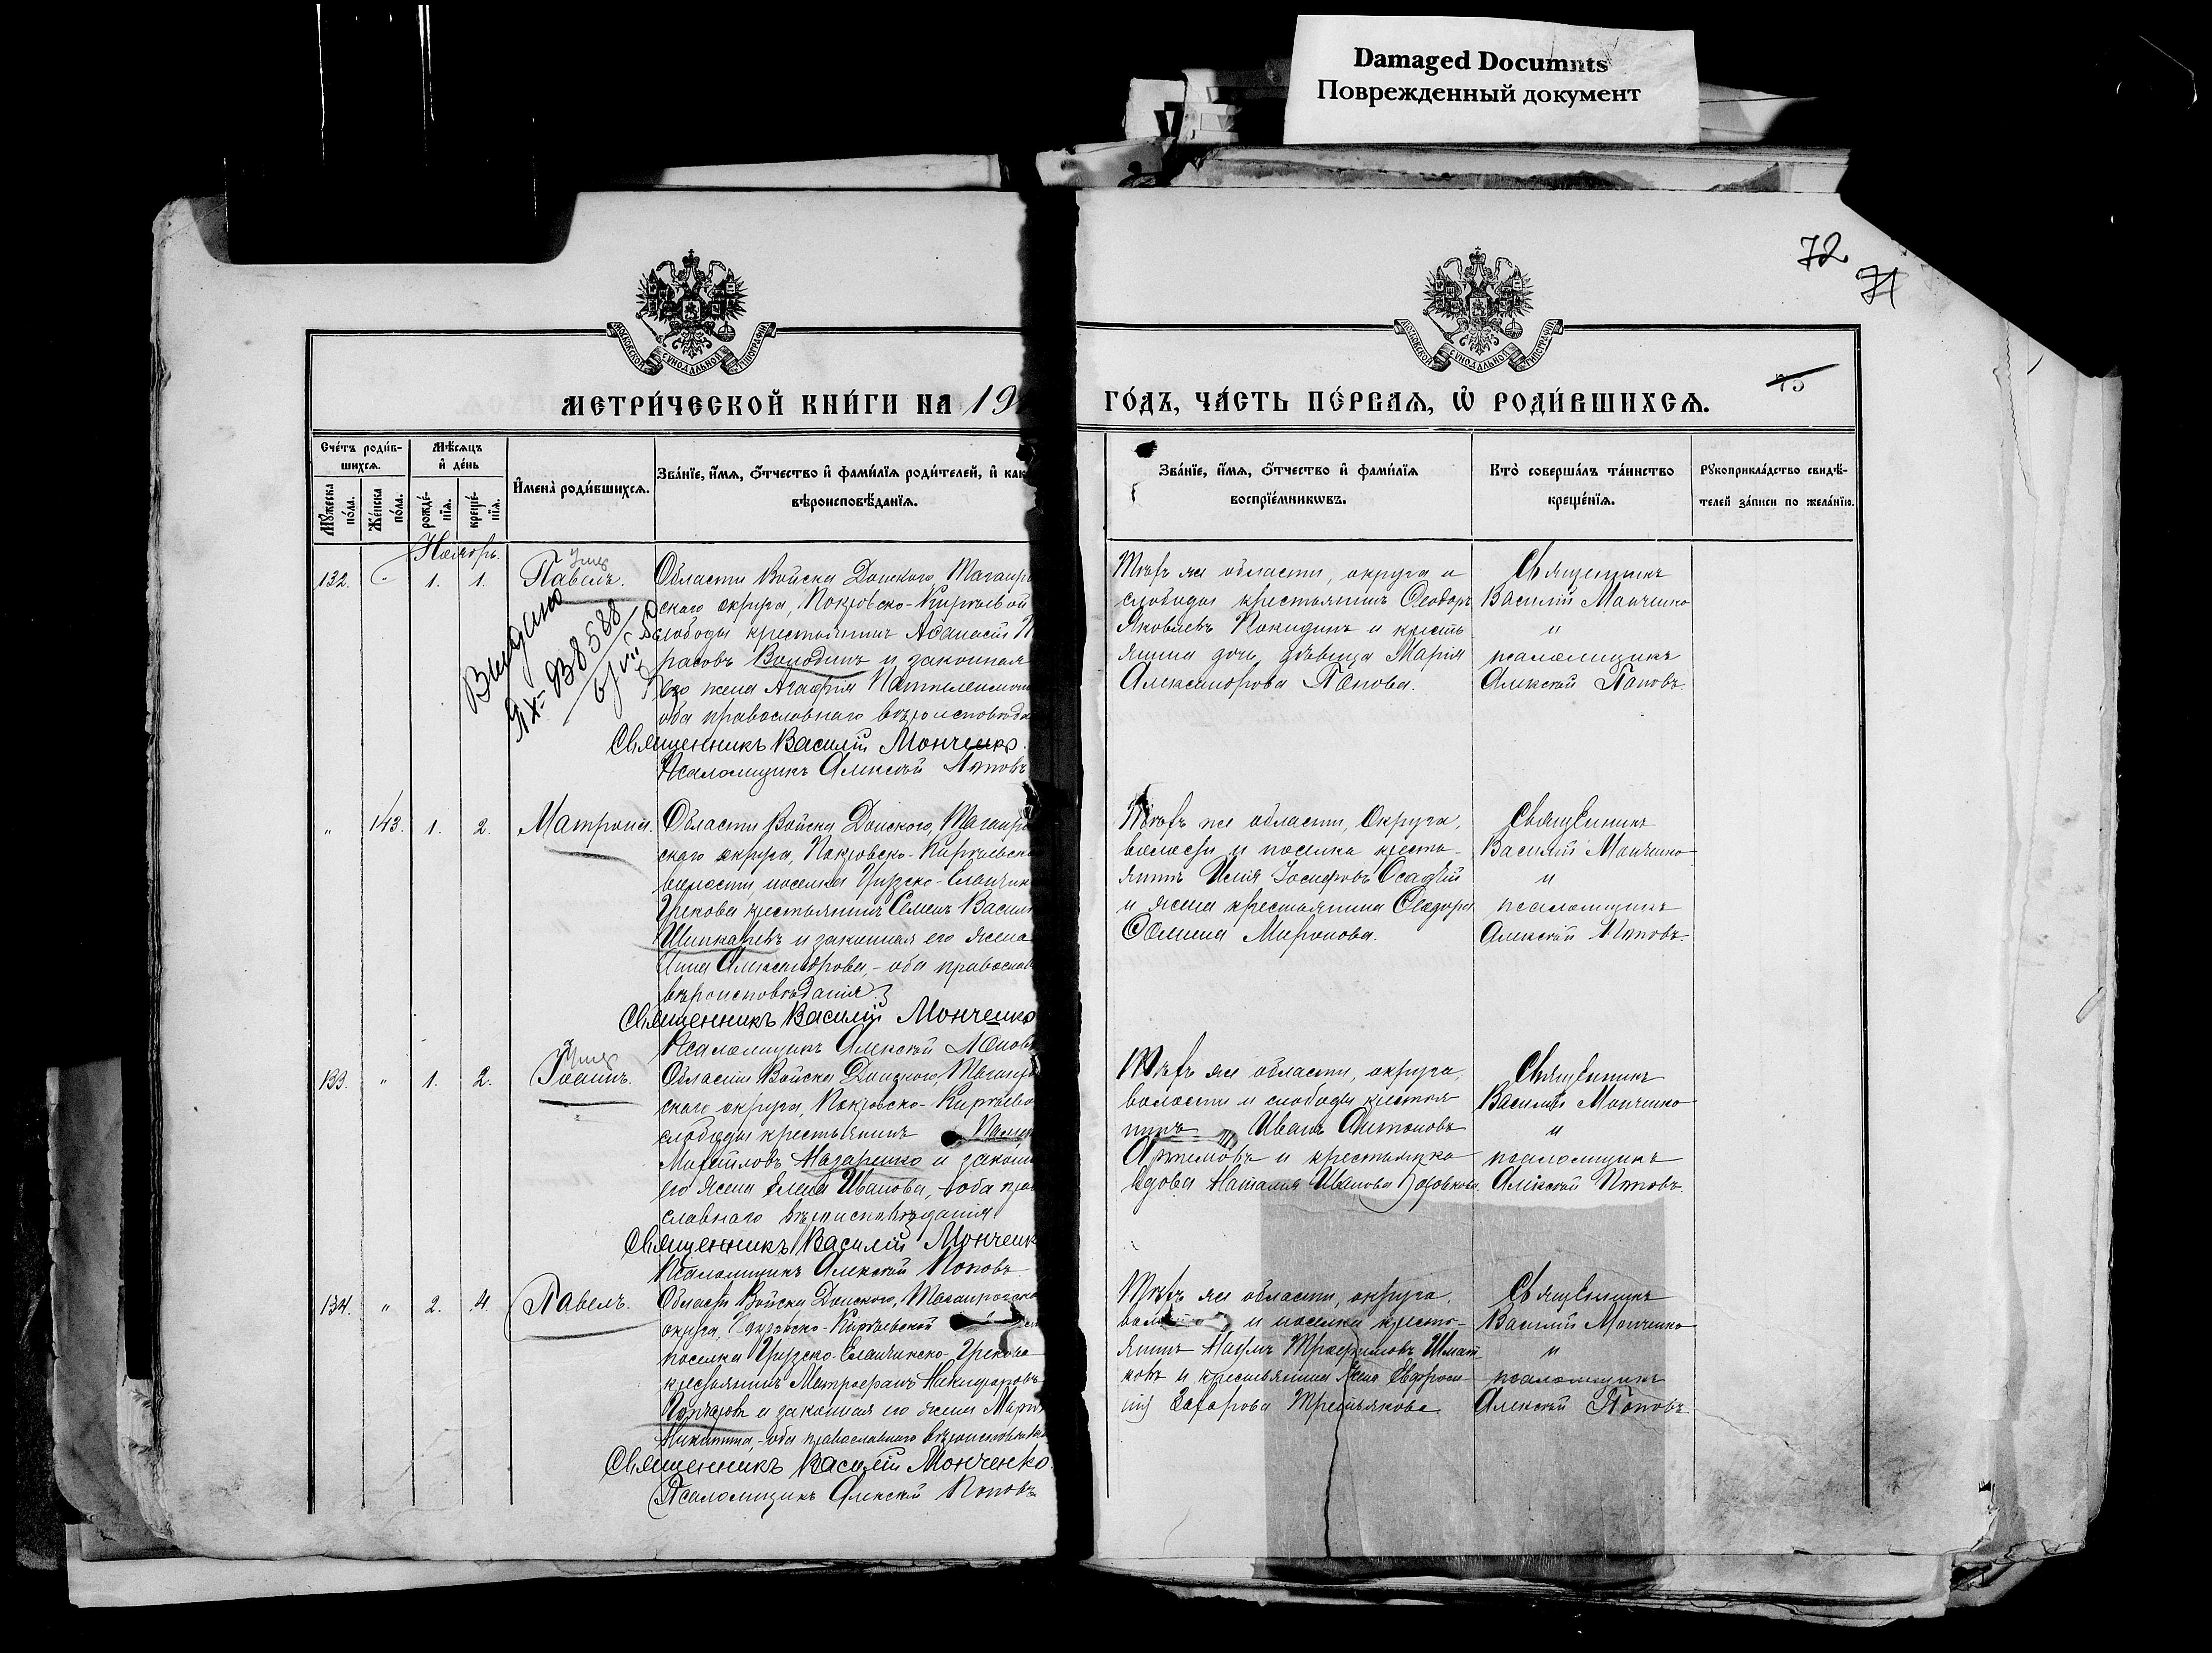 Damaged Documnts
Поврежденный документ
72
71
75
МЕТРИ́ЧЕСКОЙ КНИ́ГИ НА 19
ГО́ДЪ, ЧА́СТЬ ПЕ́РВАЯ, Ѡ҆ РОДИ́ВШИХСЯ.
Сче́тъ роди́в-
шихся.
Мѣ́сяцъ
и҆ де́нь
Мꙋ́жеска по́ла.
Же́нска по́ла.
рожде́-
нїя.
креще́-
нїя.
И҆мена̀ роди́вшихся.
Зва́нїе, и҆́мя, ѻ҆́тчество и҆ фами́лїя роди́телей, и҆ как
вѣроисповѣ́данїя.
Зва́нїе, и҆́мя, ѻ҆́тчество и҆ фами́лїя
воспрїе́мникѡвъ.
Кто̀ соверша́лъ та́инство
креще́нїя.
Рꙋкоприкла́дство свидѣ́-
телей за́писи по жела́нїю.
Ноябрь.
132. " 1. 1. Павелъ.
умер
Выдано
Области Войска Донского, Таганро
скаго округа, Покровско-Кирѣевой
слободы крестьянинъ Аѳанасій
расовъ Володинъ и законная
его жена Агафія Пантелеимон
оба православнаго вѣроисповѣда
Священникъ Василій Монченко.
Псаломщикъ Алексѣй Поповъ
Тѣхъ же области, округа и
слободы крестьянинъ Ѳеодоръ
Яковлевъ Покидинъ и кресть
янина дочь, дѣвица Марія
Александрова Попова.
Священникъ
Василій Монченко
и
псаломщикъ
Алексѣй Поповъ.
" 143. 1. 2. Матрона.
Области Войска Донского, Таганро
скаго округа, Покровско-Кирѣевско
волости поселка Грузско-Еланчик
Грекова крестьянинъ Семенъ Васил
Шинкаревъ и законная его жена
Анна Александрова, - оба православ
вѣроисповѣданія.
Священникъ Василій Монченко
Псаломщикъ Алексѣй Попов
Тѣхъ же области, округа,
волости и поселка кресть-
янинъ Илія Іосифовъ Осадчій
и жена крестьянина Ѳеодора
Ѳомина Миронова.
Священникъ
Василій Монченко
и
псаломщикъ
Алексѣй Поповъ.
133. " 1. 2. Іоаннъ.
умер
Области Войска Донского, Таганро
скаго округа, Покровско-Кирѣево
слободы крестьянинъ
Михайловъ Назаренко и закон
его жена Елена Иванова, - оба пра
славнаго вѣроисповѣданія
Священникъ Василій Монченк
Псаломщикъ Алексѣй Поповъ
Тѣхъ же области, округа,
волости и слободы крестья
нинъ Иванъ Антоновъ
Артемовъ и крестьянка
вдова Наталія Иванова
Священникъ
Василій Монченко
и
псаломщикъ
Алексѣй Поповъ.
134. " 2. 4. Павелъ.
Области Войска Донского, Таганрогска
округа, Покровско-Кирѣевской
поселка Грузско-Еланчикско-Греково
крестьянинъ Митрофанъ Никифоровъ
и законная его жена Марія
Никитина, - оба православнаго вѣроисповѣда
Священникъ Василій Монченко.
Псаломщикъ Алексѣй Поповъ
Тѣхъ же области, округа,
и поселка кресть-
янинъ Наумъ Трофимовъ Шмат
ковъ и крестьянина жена Евфроси
нія Захарова Третьякова
Священникъ
Василій Монченко
и
псаломщикъ
Алексѣй Поповъ